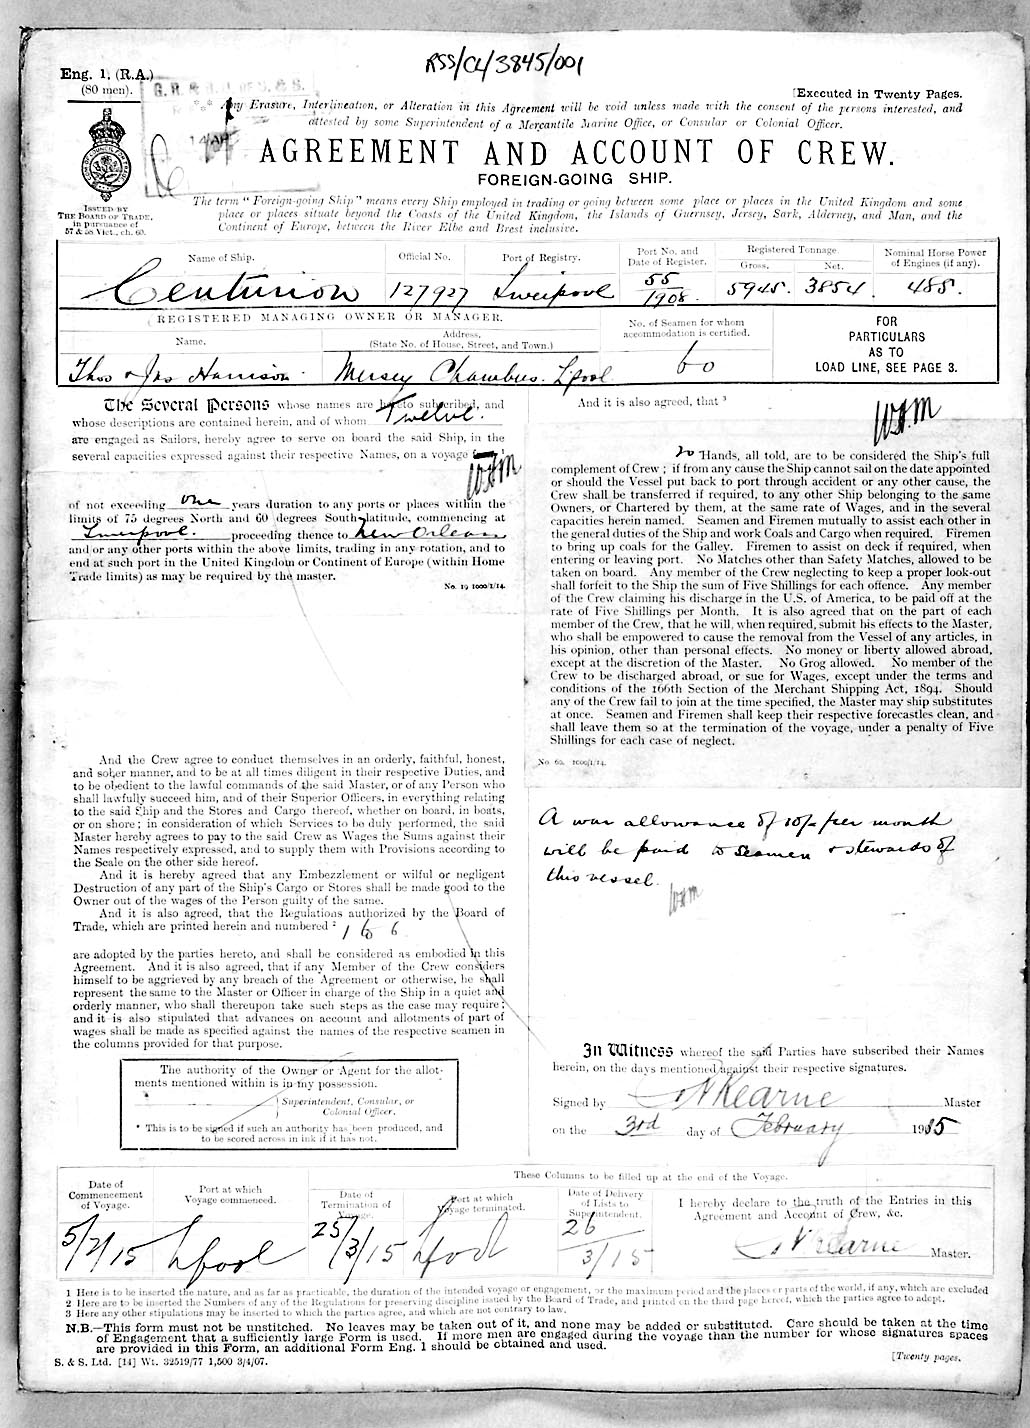 RSS/CL/3845/001
Eng. 1, (R.A.)
(80 men).
G. R. &
[Executed in Twenty Pages.
Any Erasure, Interlineation, or Alteration in this Agreement will be void unless made with the consent of the persons interested, and
attested by some Superintendent of a Mercantile Marine Office, or Consular or Colonial Officer.
AGREEMENT AND ACCOUNT OF CREW.
FOREIGN-GOING SHIP.
ISSUED BY
THE BOARD OF TRADE,
in pursuance of
57 & 58 Vict., ch. 60.
The term “Foreign-going Ship” means every Ship employed in trading or going between some place or places in the United Kingdom and some
place or places situate beyond the Coasts of the United Kingdom, the Islands of Guernsey, Jersey, Sark, Alderney, and Man, and the
Continent of Europe, between the River Elbe and Brest inclusive.
Name of Ship. Official No. Port of Registry. Port No. and Date of Register. Registered Tonnage. Gross. Net. Nominal Horse Power of Engines (if any).
Centurion 127927 Liverpool 55/1908. 5945. 3854. 488.
REGISTERED MANAGING OWNER OR MANAGER.
Name. Address. (State No. of House, Street, and Town.)
No. of Seamen for whom accommodation is certified.
FOR
PARTICULARS
AS TO
LOAD LINE, SEE PAGE 3.
Thos & Jas Harrison. Mersey Chambers. L'pool 60
The Several Persons whose names are hereto subscribed, and
whose descriptions are contained herein, and of whom Twelve.
are engaged as Sailors, hereby agree to serve on board the said Ship, in the
several capacities expressed against their respective Names, on a voyage
of not exceeding one years duration to any ports or places within the
limits of 75 degrees North and 60 degrees South latitude, commencing at
Liverpool. proceeding thence to New Orleans
and/or any other ports within the above limits, trading in any rotation, and to
end at such port in the United Kingdom or Continent of Europe (within Home
Trade limits) as may be required by the master.
No. 19 1000/1/14.
And the Crew agree to conduct themselves in an orderly, faithful, honest,
and sober manner, and to be at all times diligent in their respective Duties, and
to be obedient to the lawful commands of the said Master, or of any Person who
shall lawfully succeed him, and of their Superior Officers, in everything relating
to the said Ship and the Stores and Cargo thereof, whether on board, in boats,
or on shore; in consideration of which Services to be duly performed, the said
Master hereby agrees to pay to the said Crew as Wages the Sums against their
Names respectively expressed, and to supply them with Provisions according to
the Scale on the other side hereof.
And it is hereby agreed that any Embezzlement or wilful or negligent
Destruction of any part of the Ship's Cargo or Stores shall be made good to the
Owner out of the wages of the Person guilty of the same.
And it is also agreed, that the Regulations authorized by the Board of
Trade, which are printed herein and numbered 2 1 to 6
are adopted by the parties hereto, and shall be considered as embodied in this
Agreement. And it is also agreed, that if any Member of the Crew considers
himself to be aggrieved by any breach of the Agreement or otherwise, he shall
represent the same to the Master or Officer in charge of the Ship in a quiet and
orderly manner, who shall thereupon take such steps as the case may require;
and it is also stipulated that advances on account and allotments of part of
wages shall be made as specified against the names of the respective seamen in
the columns provided for that purpose.
The authority of the Owner or Agent for the allot-
ments mentioned within is in my possession.
Superintendent, Consular, or
Colonial Officer.
* This is to be signed if such an authority has been produced, and
to be scored across in ink if it has not.
And it is also agreed, that 3
Hands, all told, are to be considered the Ship's full
complement of Crew; if from any cause the Ship cannot sail on the date appointed
or should the Vessel put back to port through accident or any other cause, the
Crew shall be transferred if required, to any other Ship belonging to the same
Owners, or Chartered by them, at the same rate of Wages, and in the several
capacities herein named. Seamen and Firemen mutually to assist each other in
the general duties of the Ship and work Coals and Cargo when required. Firemen
to bring up coals for the Galley. Firemen to assist on deck if required, when
entering or leaving port. No Matches other than Safety Matches, allowed to be
taken on board. Any member of the Crew neglecting to keep a proper look-out
shall forfeit to the Ship the sum of Five Shillings for each offence. Any member
of the Crew claiming his discharge in the U.S. of America, to be paid off at the
rate of Five Shillings per Month. It is also agreed that on the part of each
member of the Crew, that he will, when required, submit his effects to the Master,
who shall be empowered to cause the removal from the Vessel of any articles, in
his opinion, other than personal effects. No money or liberty allowed abroad,
except at the discretion of the Master. No Grog allowed. No member of the
Crew to be discharged abroad, or sue for Wages, except under the terms and
conditions of the 166th Section of the Merchant Shipping Act, 1894. Should
any of the Crew fail to join at the time specified, the Master may ship substitutes
at once. Seamen and Firemen shall keep their respective forecastles clean, and
shall leave them so at the termination of the voyage, under a penalty of Five
Shillings for each case of neglect.
No 62. 1000/1/14.
A war allowance of 10/- per month
will be paid to seamen & stewards of
this vessel.
In Witness whereof the said Parties have subscribed their Names
herein, on the days mentioned against their respective signatures.
Signed by Kearne Master
on the 3rd day of February 1915
These Columns to be filled up at the end of the Voyage.
Date of Commencement of Voyage. Port at which Voyage commenced. Date of Termination of Voyage. Port at which Voyage terminated. Date of Delivery of Lists to Superintendent.
I hereby declare to the truth of the Entries in this
Agreement and Account of Crew, &c.
5/2/15 L'pool 25/3/15 L'pool 26/3/15 Kearne Master.
1 Here is to be inserted the nature, and as far as practicable, the duration of the intended voyage or engagement, or the maximum period and the places or parts of the world, if any, which are excluded
2 Here are to be inserted the Numbers of any of the Regulations for preserving discipline issued by the Board of Trade, and printed on the third page hereof, which the parties agree to adopt.
3 Here any other stipulations may be inserted to which the parties agree, and which are not contrary to law.
N.B.—This form must not be unstitched. No leaves may be taken out of it, and none may be added or substituted. Care should be taken at the time
of Engagement that a sufficiently large Form is used. If more men are engaged during the voyage than the number for whose signatures spaces
are provided in this Form, an additional Form Eng. 1 should be obtained and used.
S. & S. Ltd. [14] Wt. 32519/77 1,500 3/4/07.
[Twenty pages.